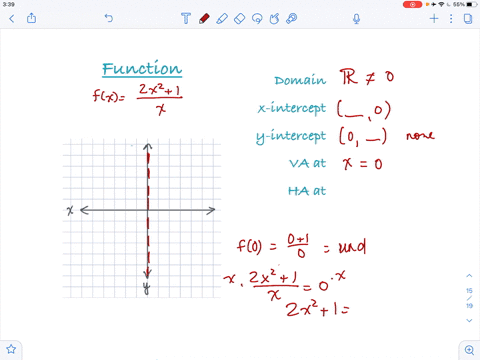 3:39
55%
Function
f(x) = (2x²+1)/x
Domain ℝ ≠ 0
x-intercept (__, 0)
y-intercept (0, __) none
VA at x = 0
HA at
x
y
f(0) = (0+1)/0 = und
x · (2x²+1)/x = 0 · x
2x²+1 =
15
/
19